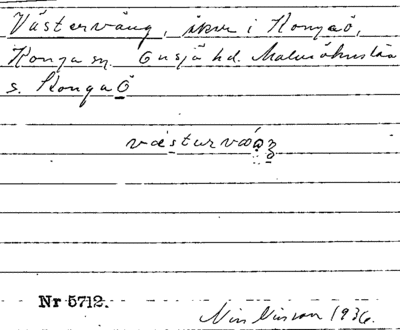 Västervång, åker i Konga ö,
Konga sn. Onsjö hd. Malmöhus län
s. Konga Ö
västurvåŋ
Nr 5712.
Nils Nilsson 1936.